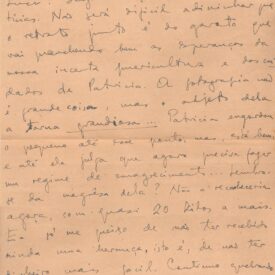 tícias. Não será difícil adivinhar que
o retrato junto é do garoto que
vai preenchendo bem as esperanças da
nossa incerta puericultura e dos cui
dados de Patricia. A fotografia não
é grande coisa, mas o objeto dela
a torna grandiosa... Patricia engordou
o pequeno até esse ponto, mas, está bem,
e até ela julga que agora precisa fazer
um regime de emagrecimento... Lembra-
se da magresa dela? Não a reconheceria
agora, com quasi 20 kilos a mais.
Eu já me queixo de não ter recebido
ainda uma herança, isto é, de não ter
dinheiro mais facil. Continuo quebrando